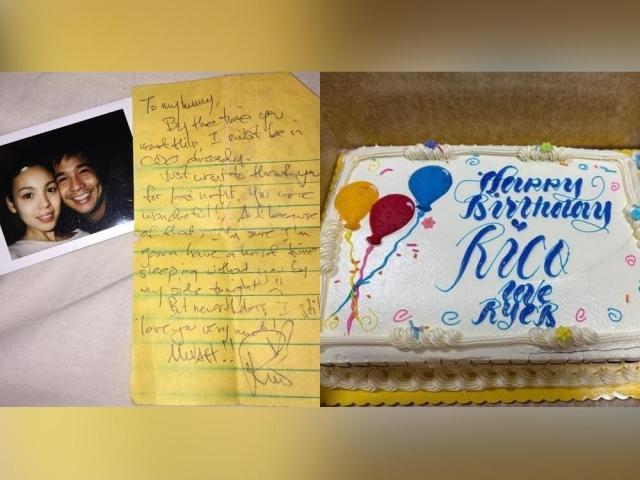 To my hunny,
By the time you
read this, I must be in
CDO already.
Just want to thank you
for last night. You were
wonderful!!! And because
of that I'm sure I'm
gonna have a hard time
sleeping without you by
my side tonight!
But nevertheless, I still
love you very much!
MWAH!!
Rico
Happy
Birthday
Rico
love
RYCB